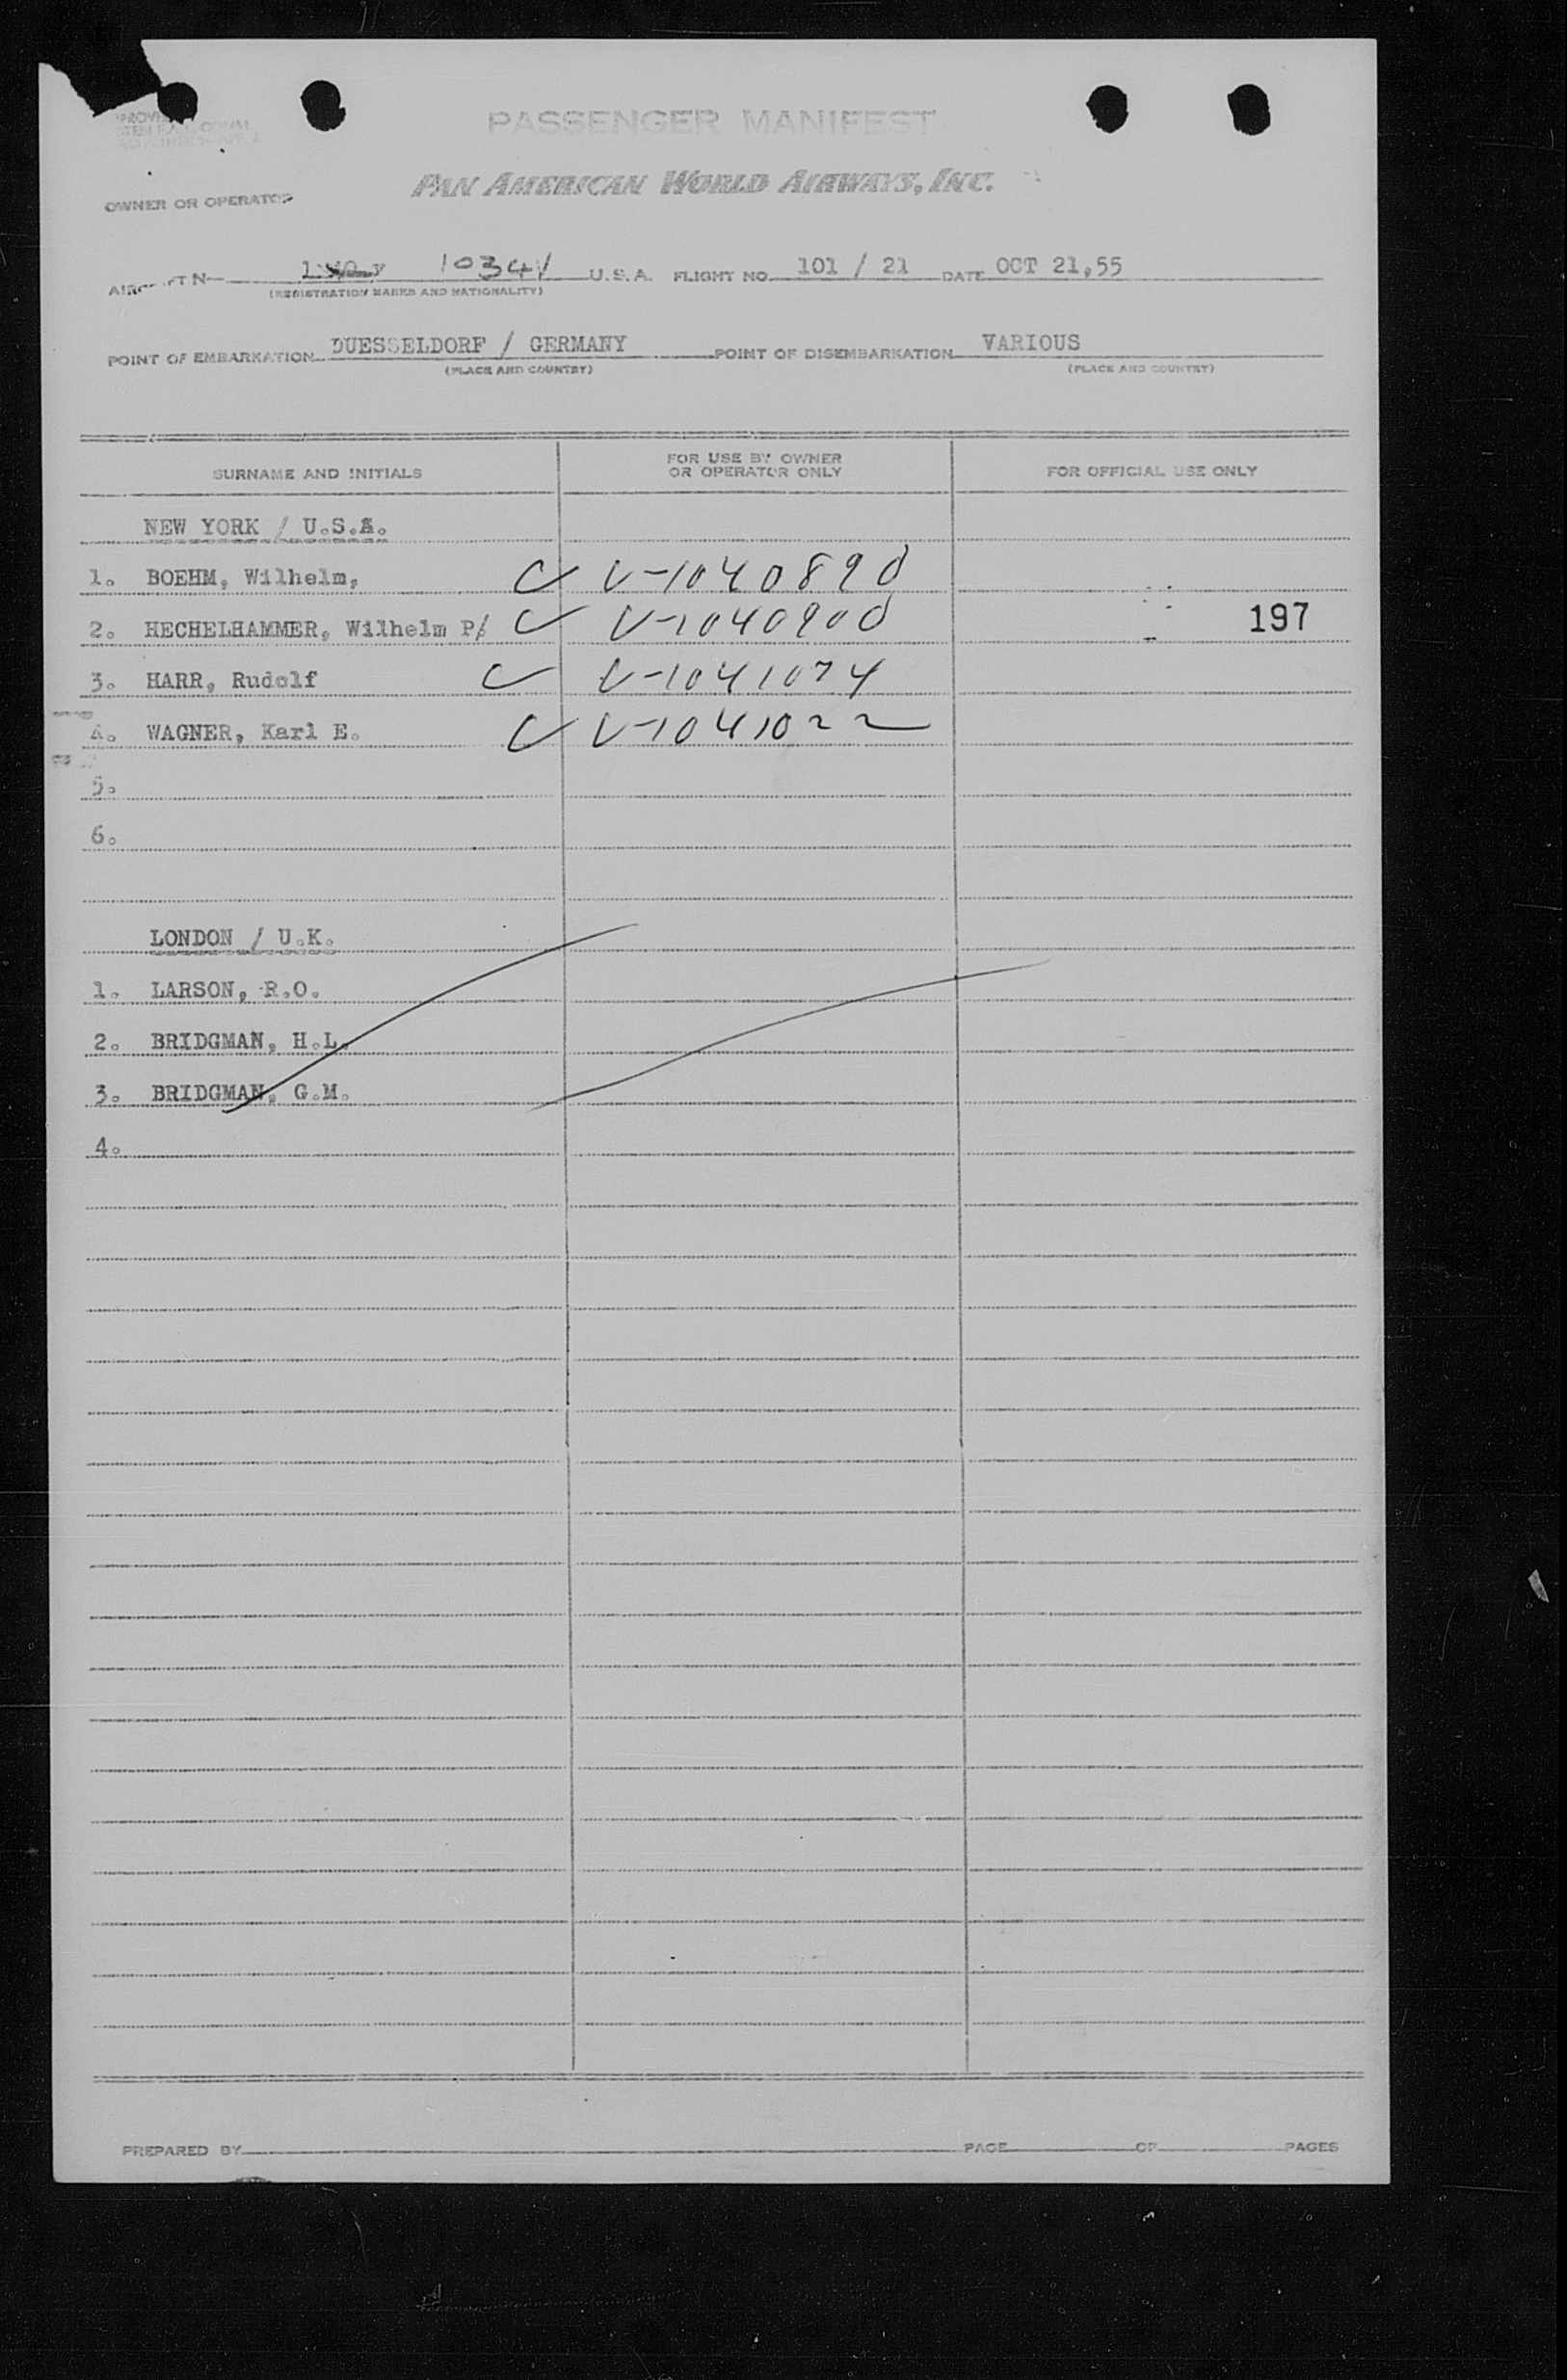 PASSENGER MANIFEST
PAN AMERICAN WORLD AIRWAYS, INC.
OWNER OR OPERATOR
AIRCRAFT N— 1034V U.S.A. FLIGHT NO. 101 / 21 DATE OCT 21,55
(REGISTRATION MARKS AND NATIONALITY)
POINT OF EMBARKATION DUESSELDORF / GERMANY POINT OF DISEMBARKATION VARIOUS
(PLACE AND COUNTRY) (PLACE AND COUNTRY)
SURNAME AND INITIALS FOR USE BY OWNER OR OPERATOR ONLY FOR OFFICIAL USE ONLY
NEW YORK / U.S.A.
1. BOEHM, Wilhelm, V-1040890
2. HECHELHAMMER, Wilhelm P. V-1040900 197
3. HARR, Rudolf V-1041074
4. WAGNER, Karl E. V-1041022
5.
6.
LONDON / U.K.
1. LARSON, R.O.
2. BRIDGMAN, H.L.
3. BRIDGMAN, G.M.
4.
PREPARED BY PAGE OF PAGES